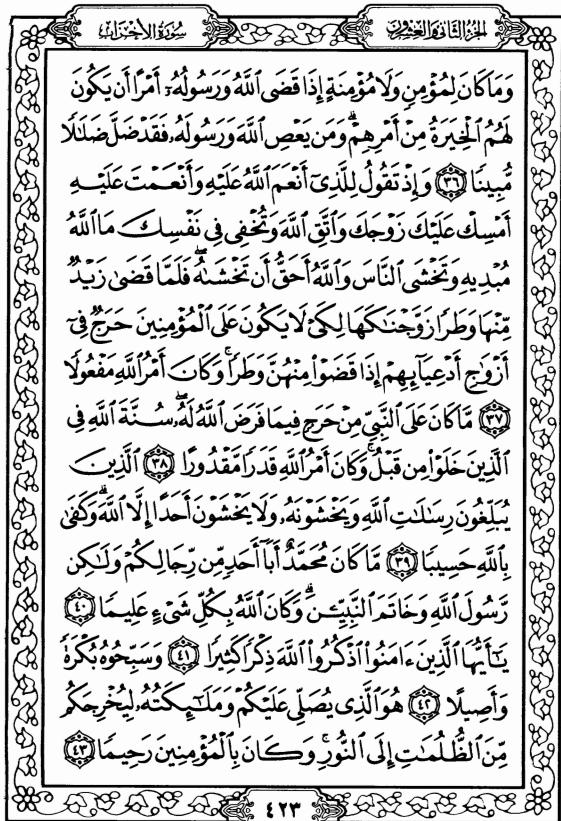 الجزء الثاني والعشرون
سورة الأحزاب
وَمَا كَانَ لِمُؤْمِنٍ وَلَا مُؤْمِنَةٍ إِذَا قَضَى ٱللَّهُ وَرَسُولُهُۥٓ أَمْرًا أَن يَكُونَ
لَهُمُ ٱلْخِيَرَةُ مِنْ أَمْرِهِمْ ۗ وَمَن يَعْصِ ٱللَّهَ وَرَسُولَهُۥ فَقَدْ ضَلَّ ضَلَٰلًا
مُّبِينًا ٣٦ وَإِذْ تَقُولُ لِلَّذِىٓ أَنْعَمَ ٱللَّهُ عَلَيْهِ وَأَنْعَمْتَ عَلَيْهِ
أَمْسِكْ عَلَيْكَ زَوْجَكَ وَٱتَّقِ ٱللَّهَ وَتُخْفِى فِى نَفْسِكَ مَا ٱللَّهُ
مُبْدِيهِ وَتَخْشَى ٱلنَّاسَ وَٱللَّهُ أَحَقُّ أَن تَخْشَىٰهُ ۖ فَلَمَّا قَضَىٰ زَيْدٌ
مِّنْهَا وَطَرًا زَوَّجْنَٰكَهَا لِكَىْ لَا يَكُونَ عَلَى ٱلْمُؤْمِنِينَ حَرَجٌ فِىٓ
أَزْوَٰجِ أَدْعِيَآئِهِمْ إِذَا قَضَوْا۟ مِنْهُنَّ وَطَرًا ۚ وَكَانَ أَمْرُ ٱللَّهِ مَفْعُولًا
٣٧ مَّا كَانَ عَلَى ٱلنَّبِىِّ مِنْ حَرَجٍ فِيمَا فَرَضَ ٱللَّهُ لَهُۥ ۖ سُنَّةَ ٱللَّهِ فِى
ٱلَّذِينَ خَلَوْا۟ مِن قَبْلُ ۚ وَكَانَ أَمْرُ ٱللَّهِ قَدَرًا مَّقْدُورًا ٣٨ ٱلَّذِينَ
يُبَلِّغُونَ رِسَٰلَٰتِ ٱللَّهِ وَيَخْشَوْنَهُۥ وَلَا يَخْشَوْنَ أَحَدًا إِلَّا ٱللَّهَ ۗ وَكَفَىٰ
بِٱللَّهِ حَسِيبًا ٣٩ مَّا كَانَ مُحَمَّدٌ أَبَآ أَحَدٍ مِّن رِّجَالِكُمْ وَلَٰكِن
رَّسُولَ ٱللَّهِ وَخَاتَمَ ٱلنَّبِيِّۦنَ ۗ وَكَانَ ٱللَّهُ بِكُلِّ شَىْءٍ عَلِيمًا ٤٠
يَٰٓأَيُّهَا ٱلَّذِينَ ءَامَنُوا۟ ٱذْكُرُوا۟ ٱللَّهَ ذِكْرًا كَثِيرًا ٤١ وَسَبِّحُوهُ بُكْرَةً
وَأَصِيلًا ٤٢ هُوَ ٱلَّذِى يُصَلِّى عَلَيْكُمْ وَمَلَٰٓئِكَتُهُۥ لِيُخْرِجَكُم
مِّنَ ٱلظُّلُمَٰتِ إِلَى ٱلنُّورِ ۚ وَكَانَ بِٱلْمُؤْمِنِينَ رَحِيمًا ٤٣
٤٢٣